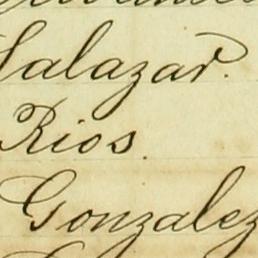 Salazar.
Rios.
Gonzalez